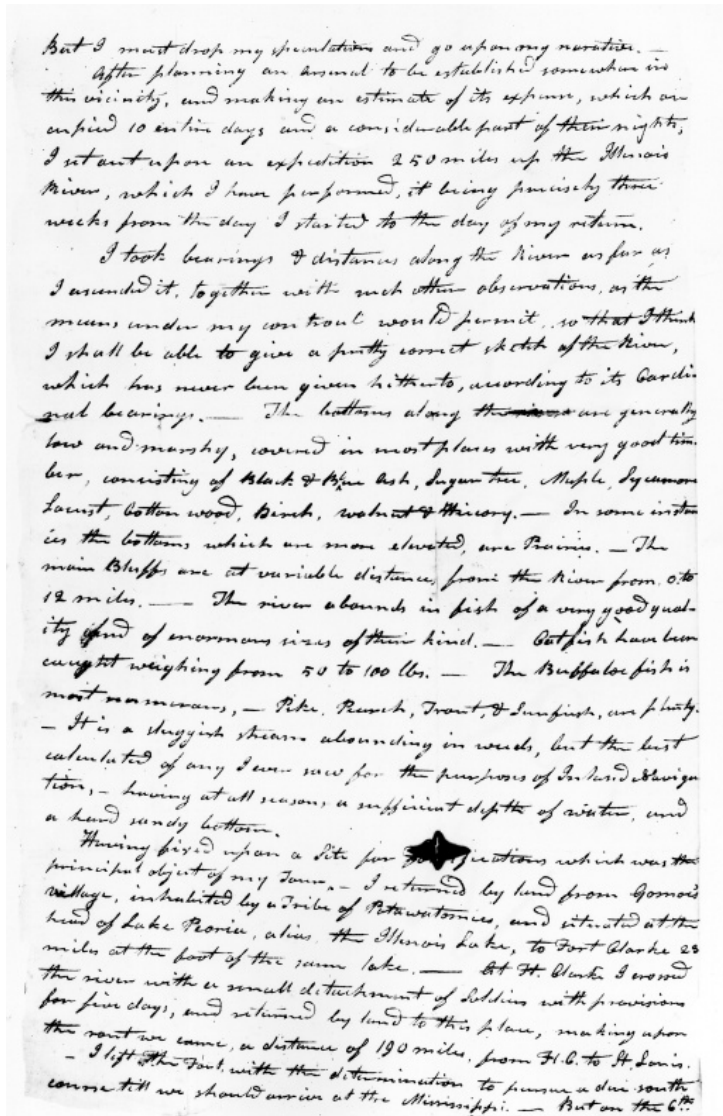 But I must drop my speculations and go upon my narative. —
After planning an Arsenal to be established somewhere in
this vicinity, and making an estimate of its expense, which oc
cupied 10 entire days and a considerable part of their nights,
I set out upon an expedition 250 miles up the Illinois
River, which I have performed, it being precisely three
weeks from the day I started to the day of my return.
I took bearings & distances along the River as far as
I ascended it, together with such other observations, as the
means under my controul would permit, so that I think
I shall be able to give a pretty correct sketch of the River,
which has never been given hitherto, according to its Cardi
nal bearings. — The bottoms along the river are generally
low and marshy, covered in most places with very good tim-
ber, consisting of Black & Blue Ash, Sugar tree, Maple, Sycamore
Locust, Cotton wood, Birch, walnut & Hicory. — In some instan
ces the bottoms which are more elevated, are Prairie. — The
main Bluffs are at variable distances from the River from 0. to
12 miles. — The river abounds in fish of a very good qual-
ity and of enormous sizes of their kind. — Catfish have been
caught weighing from 50 to 100 lbs. — The Buffaloe fish is
most numerous, — Pike, Pearch, Trout, & Sunfish, are plenty.
— It is a sluggish stream abounding in weeds, but the best
calculated of any I ever saw for the purposes of Inland Naviga
tion, — having at all seasons a sufficient depth of water, and
a hard sandy bottom.
Having fixed upon a Site for which was the
principal object of my Tour, — I returned by land from Gomois
village, inhabited by a Tribe of Potawatomies, and situated at the
head of Lake Peoria, alias, the Illinois Lake, to Fort Clarke 23
miles at the foot of the same lake. — At Ft. Clarke I crossed
the river with a small detachment of Soldiers with provisions
for five days, and returned by land to this place, making upon
the rout we came, a distance of 190 miles, from Ft. C. to St. Louis.
— I left the Fort, with the determination to pursue a due south
course till we should arrive at the Mississippi. — But on the 6th